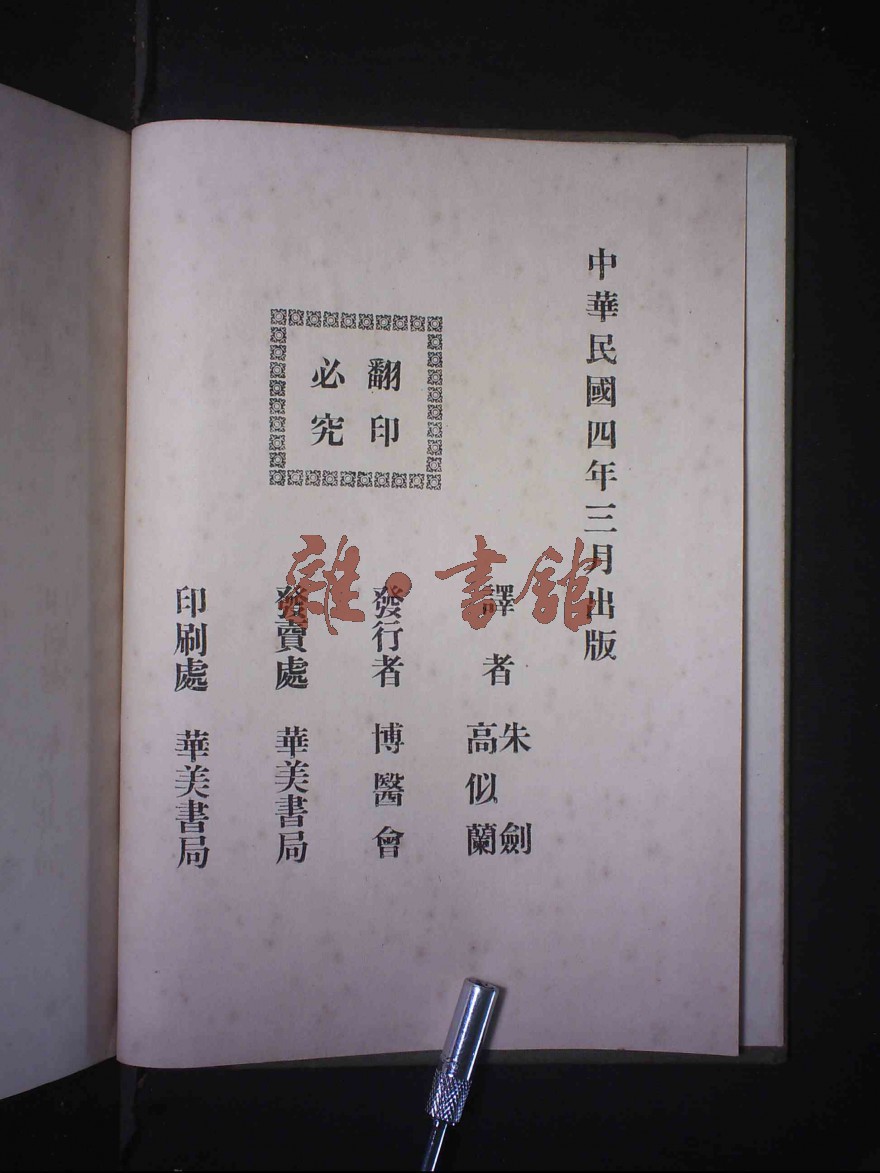 中華民國四年三月出版
翻印
必究
譯者 朱劍
高似蘭
發行者 博醫會
發賣處 華美書局
印刷處 華美書局
雜·書館